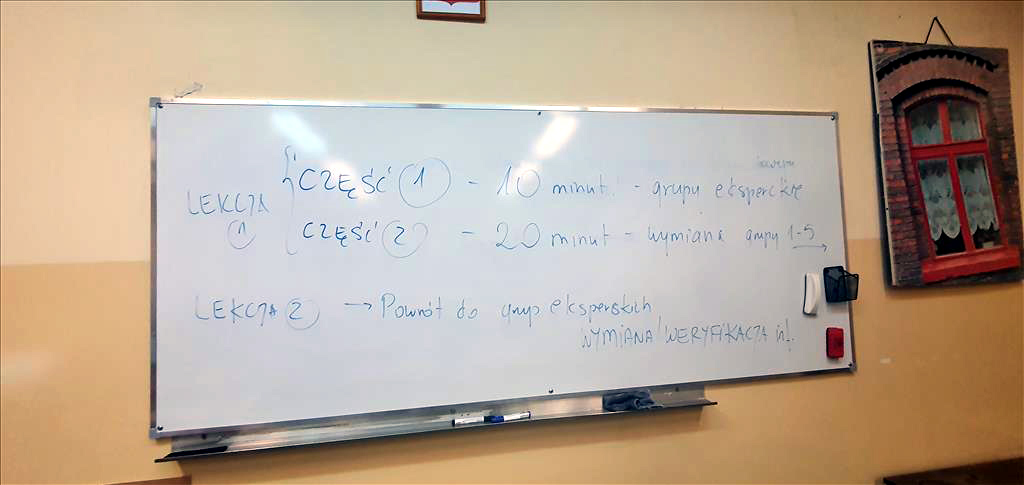 LEKCJA 1
CZĘŚĆ 1 - 10 minut - grupy eksperckie
CZĘŚĆ 2 - 20 minut - wymiana grupy 1-5
LEKCJA 2 → Powrót do grup eksperskich
WYMIANA / WERYFIKACJA